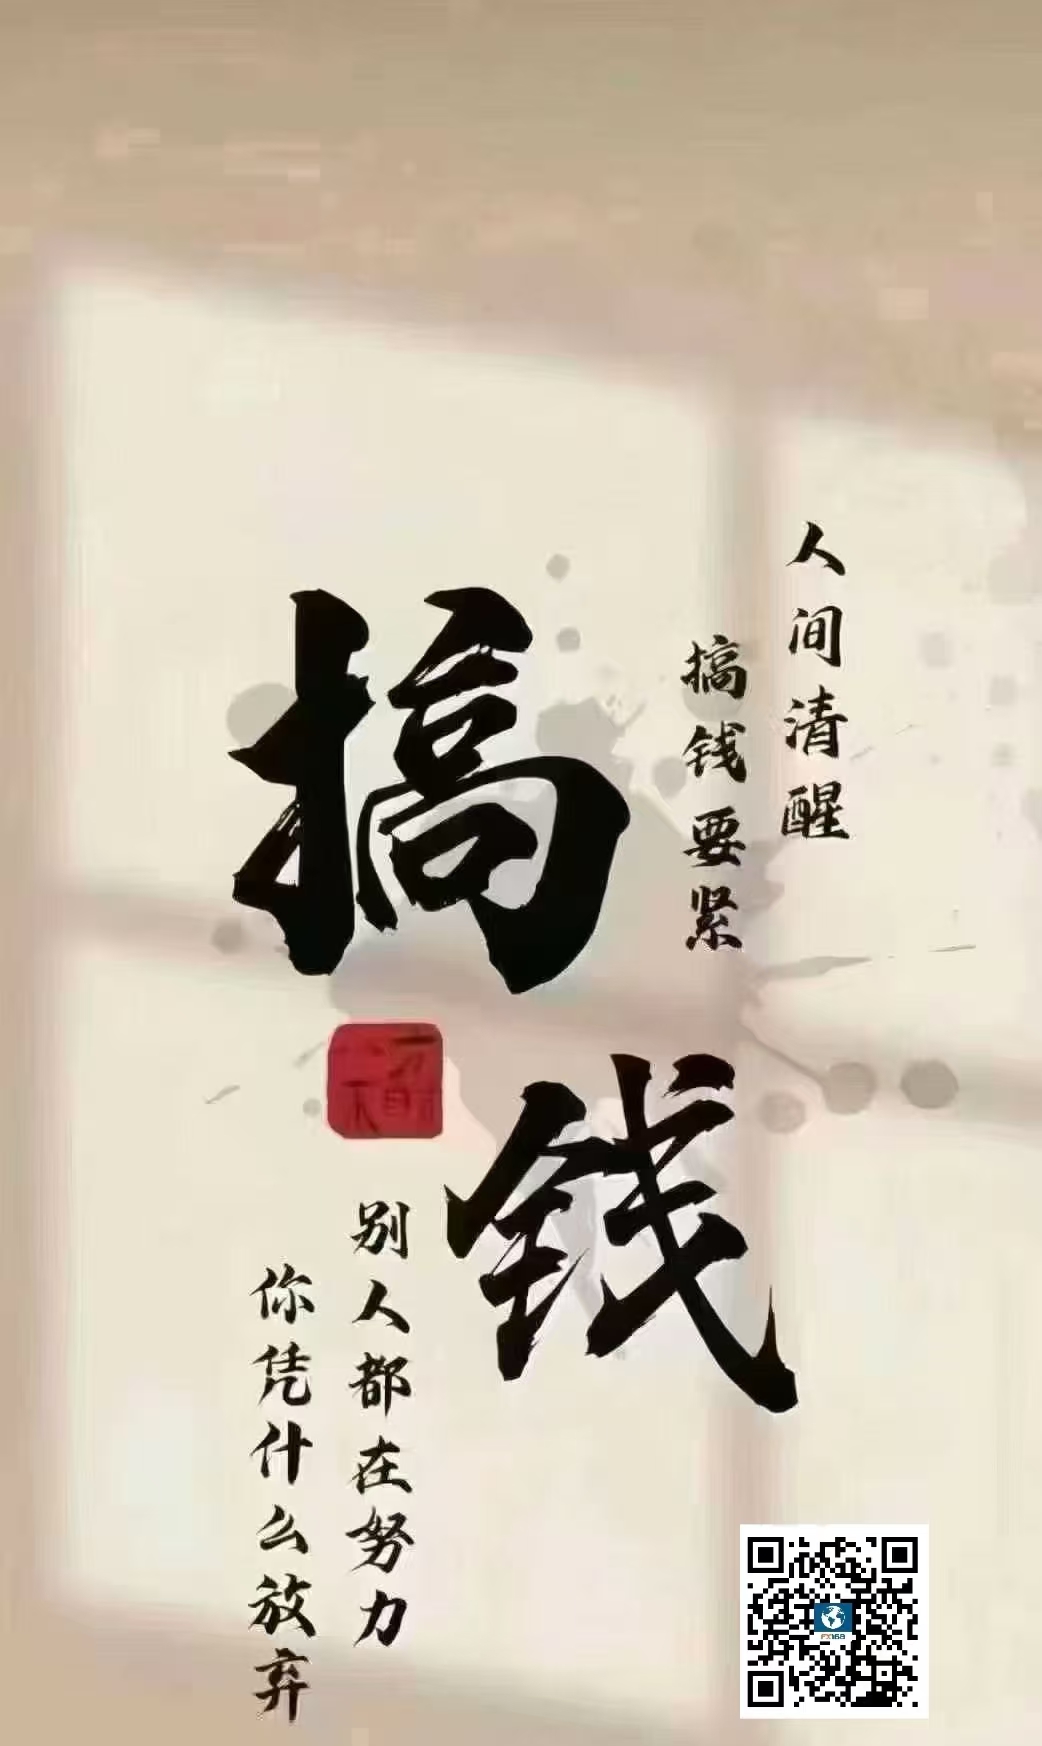 人间清醒
搞钱要紧
搞
钱
别人都在努力
你凭什么放弃
FX168